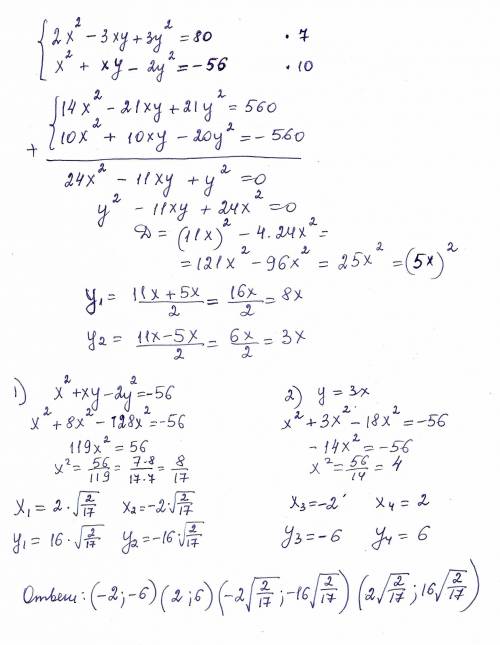 2x² - 3xy + 3y² = 80 · 7
x² + xy - 2y² = -56 · 10
14x² - 21xy + 21y² = 560
+ 10x² + 10xy - 20y² = -560
24x² - 11xy + y² = 0
y² - 11xy + 24x² = 0
D = (11x)² - 4·24x² =
= 121x² - 96x² = 25x² = (5x)²
y₁ = (11x+5x)/2 = 16x/2 = 8x
y₂ = (11x-5x)/2 = 6x/2 = 3x
1) x² + xy - 2y² = -56
x² + 8x² - 128x² = -56
119x² = 56
x² = 56/119 = 7·8/17·7 = 8/17
x₁ = 2·√(2/17) x₂ = -2√(2/17)
y₁ = 16·√(2/17) y₂ = -16·√(2/17)
2) y = 3x
x² + 3x² - 18x² = -56
-14x² = -56
x² = 56/14 = 4
x₃ = -2 x₄ = 2
y₃ = -6 y₄ = 6
Ответ: (-2; -6) (2; 6) (-2√(2/17); -16√(2/17)) (2√(2/17); 16√(2/17))